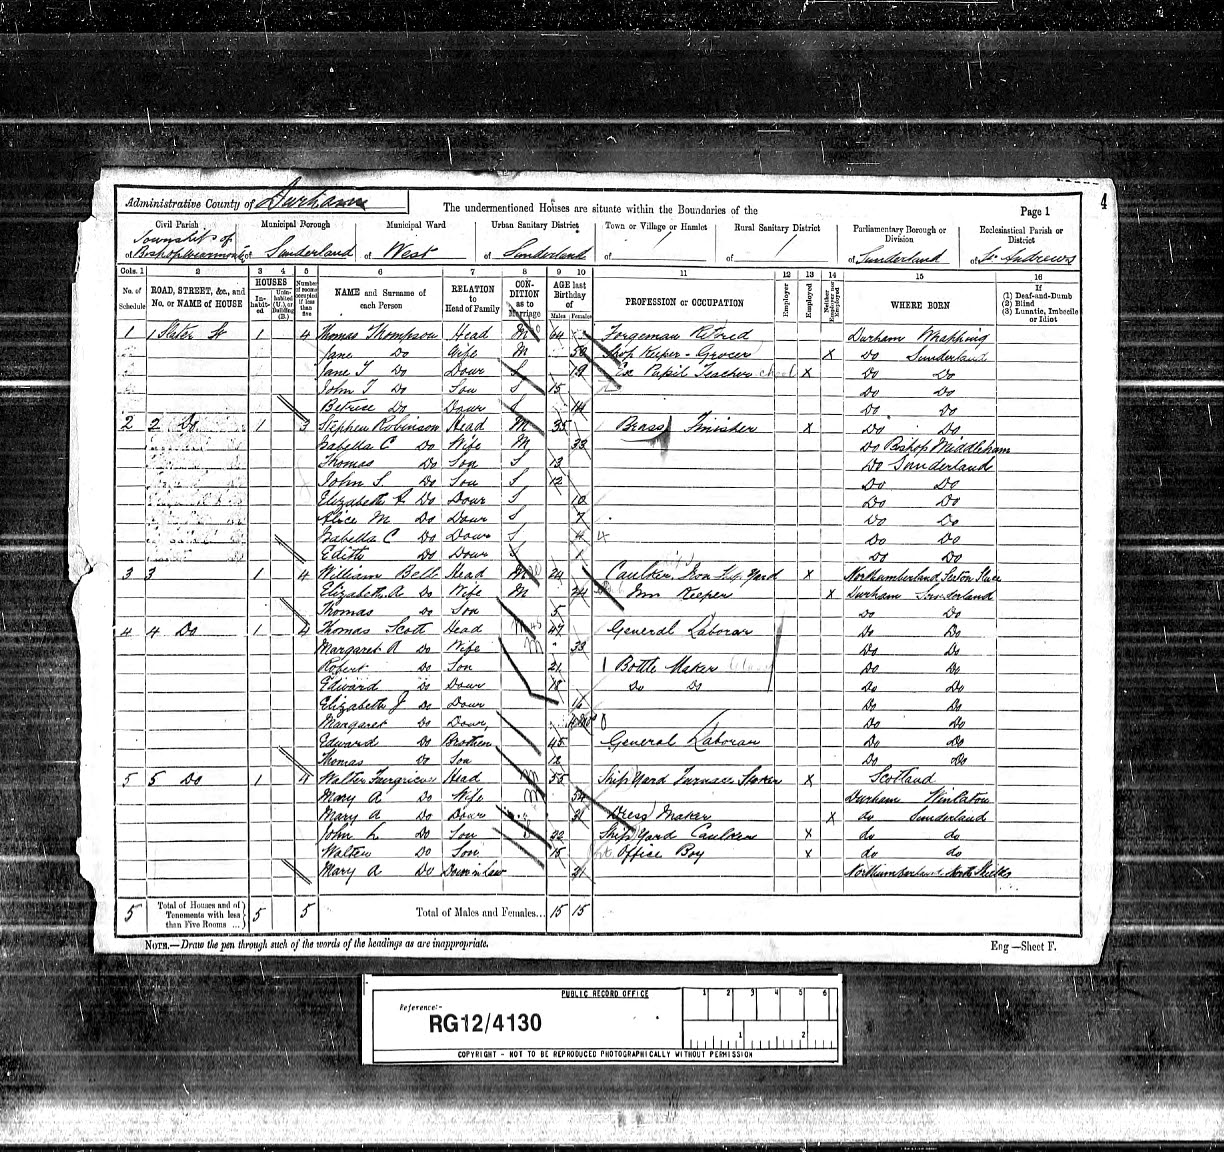 Administrative County of Durham
The undermentioned Houses are situate within the Boundaries of the
Page 1
4
Civil Parish
Municipal Borough
Municipal Ward
Urban Sanitary District
Town or Village or Hamlet
Rural Sanitary District
Parliamentary Borough or Division
Ecclesiastical Parish or District
of Township of Bishopwearmouth of Sunderland of West of Sunderland of of of Sunderland of St Andrews
Cols. 1 2 3 4 5 6 7 8 9 10 11 12 13 14 15 16
No. of Schedule
ROAD, STREET, &c., and No. or NAME of HOUSE
HOUSES
Inhabited
Uninhabited (U.), or Building (B.)
Number of rooms occupied if less than five
NAME and Surname of each Person
RELATION to Head of Family
CONDITION as to Marriage
AGE last Birthday of
Males Females
PROFESSION or OCCUPATION
Employer
Employed
Neither Employer nor Employed
WHERE BORN
If (1) Deaf-and-Dumb (2) Blind (3) Lunatic, Imbecile or Idiot
1 1 Slater St 1 4 Thomas Thompson Head M 64 Forgeman Retired Durham Wrapping
Jane Do Wife M 50 Shop Keeper - Grocer X Do Sunderland
Jane T Do Daur S 19 Ex Pupil Teacher X Do Do
John T Do Son S 15 Do Do
Betrice Do Daur S 14 Do Do
2 2 Do 1 3 Stephen Robinson Head M 35 Brass Finisher X Do Do
Isabella C Do Wife M 33 Do Bishop Middleham
Thomas Do Son S 13 Do Sunderland
John S. Do Son S 12 Do Do
Elizabeth A Do Daur S 10 Do Do
Alice M Do Daur S 7 Do Do
Isabella C Do Daur S 4 Do Do
Edith Do Daur S 1 Do Do
3 3 1 4 William Bell Head M 24 Caulker, Iron Yard X Northumberland
Elizabeth A Do Wife M 24 Inn Keeper X Durham Sunderland
Thomas Do Son 5 Do Do
4 4 Do 1 4 Thomas Scott Head 47 General Laborar Do Do
Margaret A Do Wife 33 Do Do
Robert Do Son 21 Bottle Maker Do Do
Edward Do Daur 18 Do Do Do Do
Elizabeth J Do Daur 16 Do Do
Margaret Do Daur Do Do
Edward Do Brother 45 General Laborar Do Do
Thomas Do Son 12 Do Do
5 5 Do 1 4 Walter Fairgrieve Head 55 Ship Yard Furnace Stoker X Scotland
Mary A Do Wife 54 Durham Winlaton
Mary A Do Daur 31 Dress Maker X do Sunderland
John L Do Son 22 Ship Yard Caulker X do do
Walter Do Son 15 Office Boy X do do
Mary A Do Daur in Law 21 Northumberland North Shields
5 Total of Houses and of Tenements with less than Five Rooms ... 5 5 Total of Males and Females... 15 15
NOTE.—Draw the pen through such of the words of the headings as are inappropriate.
Eng—Sheet F.
PUBLIC RECORD OFFICE
1 2 3 4 5 6
Reference:-
RG12/4130
1 2
COPYRIGHT - NOT TO BE REPRODUCED PHOTOGRAPHICALLY WITHOUT PERMISSION